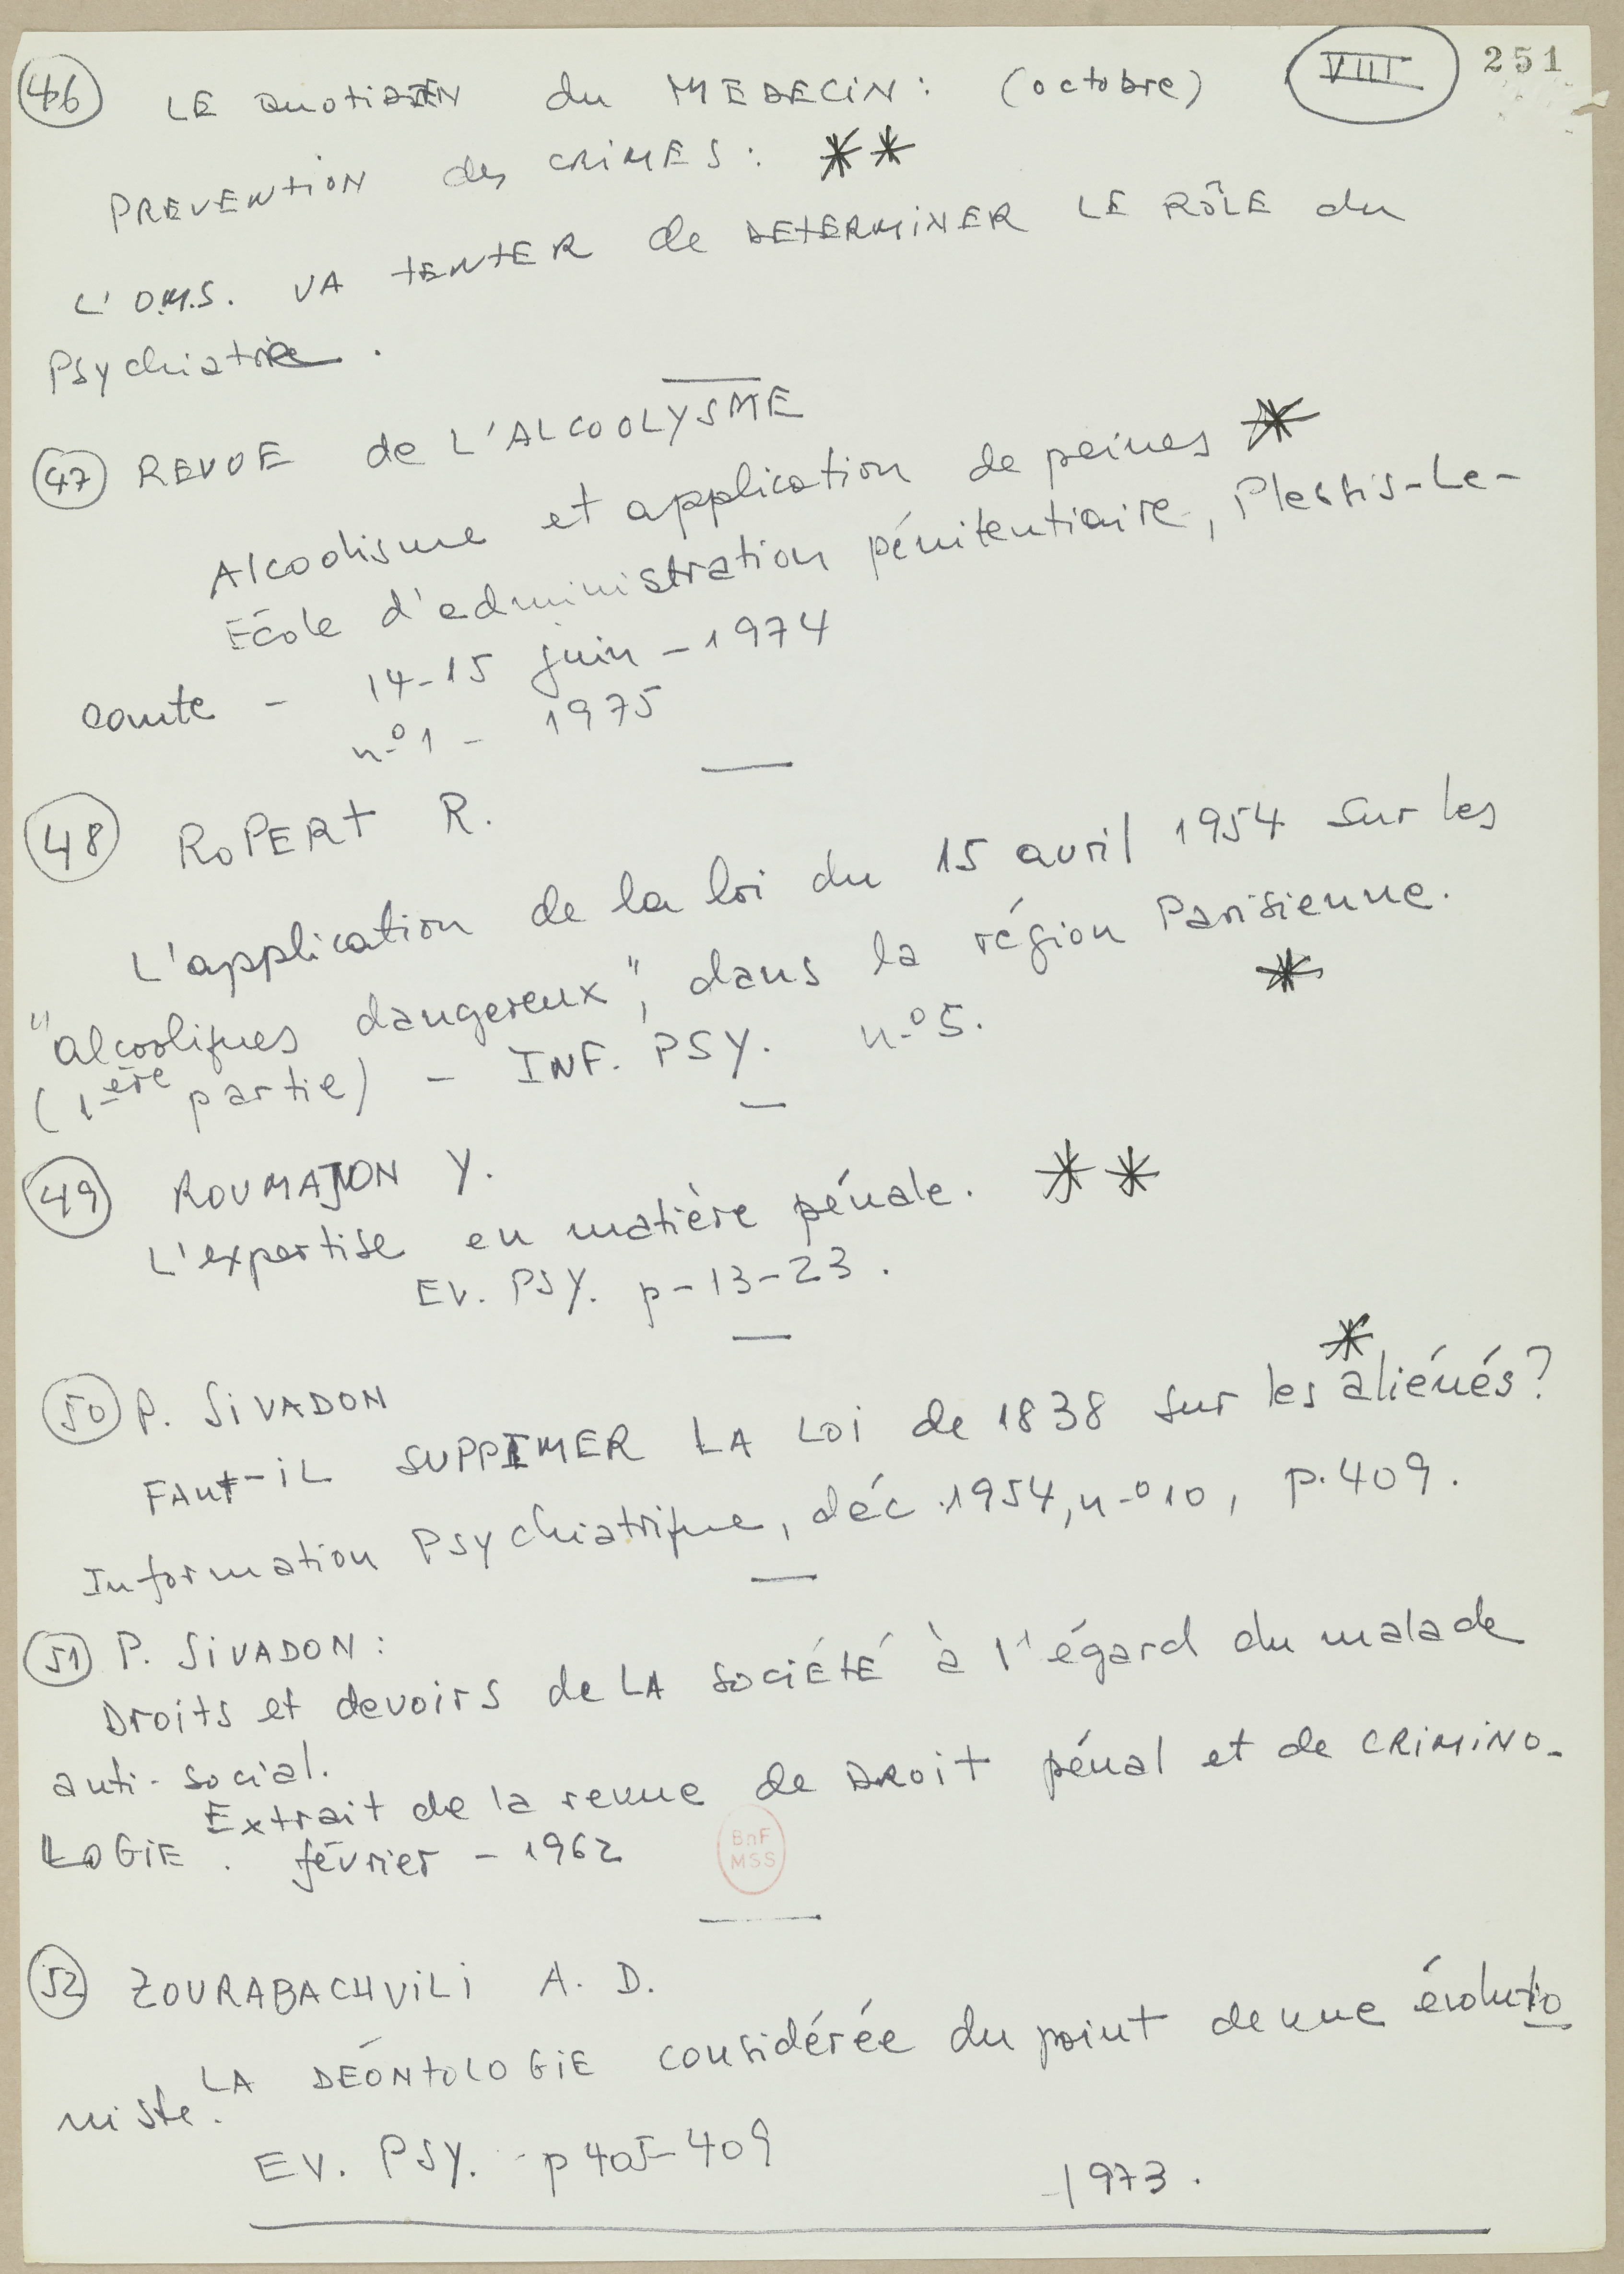 46 LE QUOTIDIEN du MEDECIN : (octobre) VIII 251
PREVENTION des CRIMES : **
L'O.M.S. VA TENTER de DETERMINER LE RÔLE du
Psychiatrie .
47 REVUE de L'ALCOOLYSME
Alcoolisme et application de peines *
École d'administration pénitentiaire, Plessis-Le-
comte - 14-15 juin - 1974
n-º1 - 1975
48 ROPERT R.
L'application de la loi du 15 avril 1954 sur les
"alcooliques dangereux", dans la région Parisienne.
(1ère partie) - INF. PSY. n-º5. *
49 ROUMAJON Y.
L'expertise en matière pénale. **
EV. PSY. p-13-23.
50 P. SIVADON *
FAUT-IL SUPPRIMER LA LOI de 1838 sur les aliénés?
Information Psychiatrique, déc. 1954, n-º10, p.409.
51 P. SIVADON :
Droits et devoirs de LA SOCIÉTÉ à l'égard du malade
anti-social.
Extrait de la revue de DROIT pénal et de CRIMINO-
LOGIE . février - 1962
BnF
MSS
52 ZOURABACHVILI A. D.
LA DÉONTOLOGIE considérée du point de vue évolutio
niste.
EV. PSY. - p 405-409
-1973.